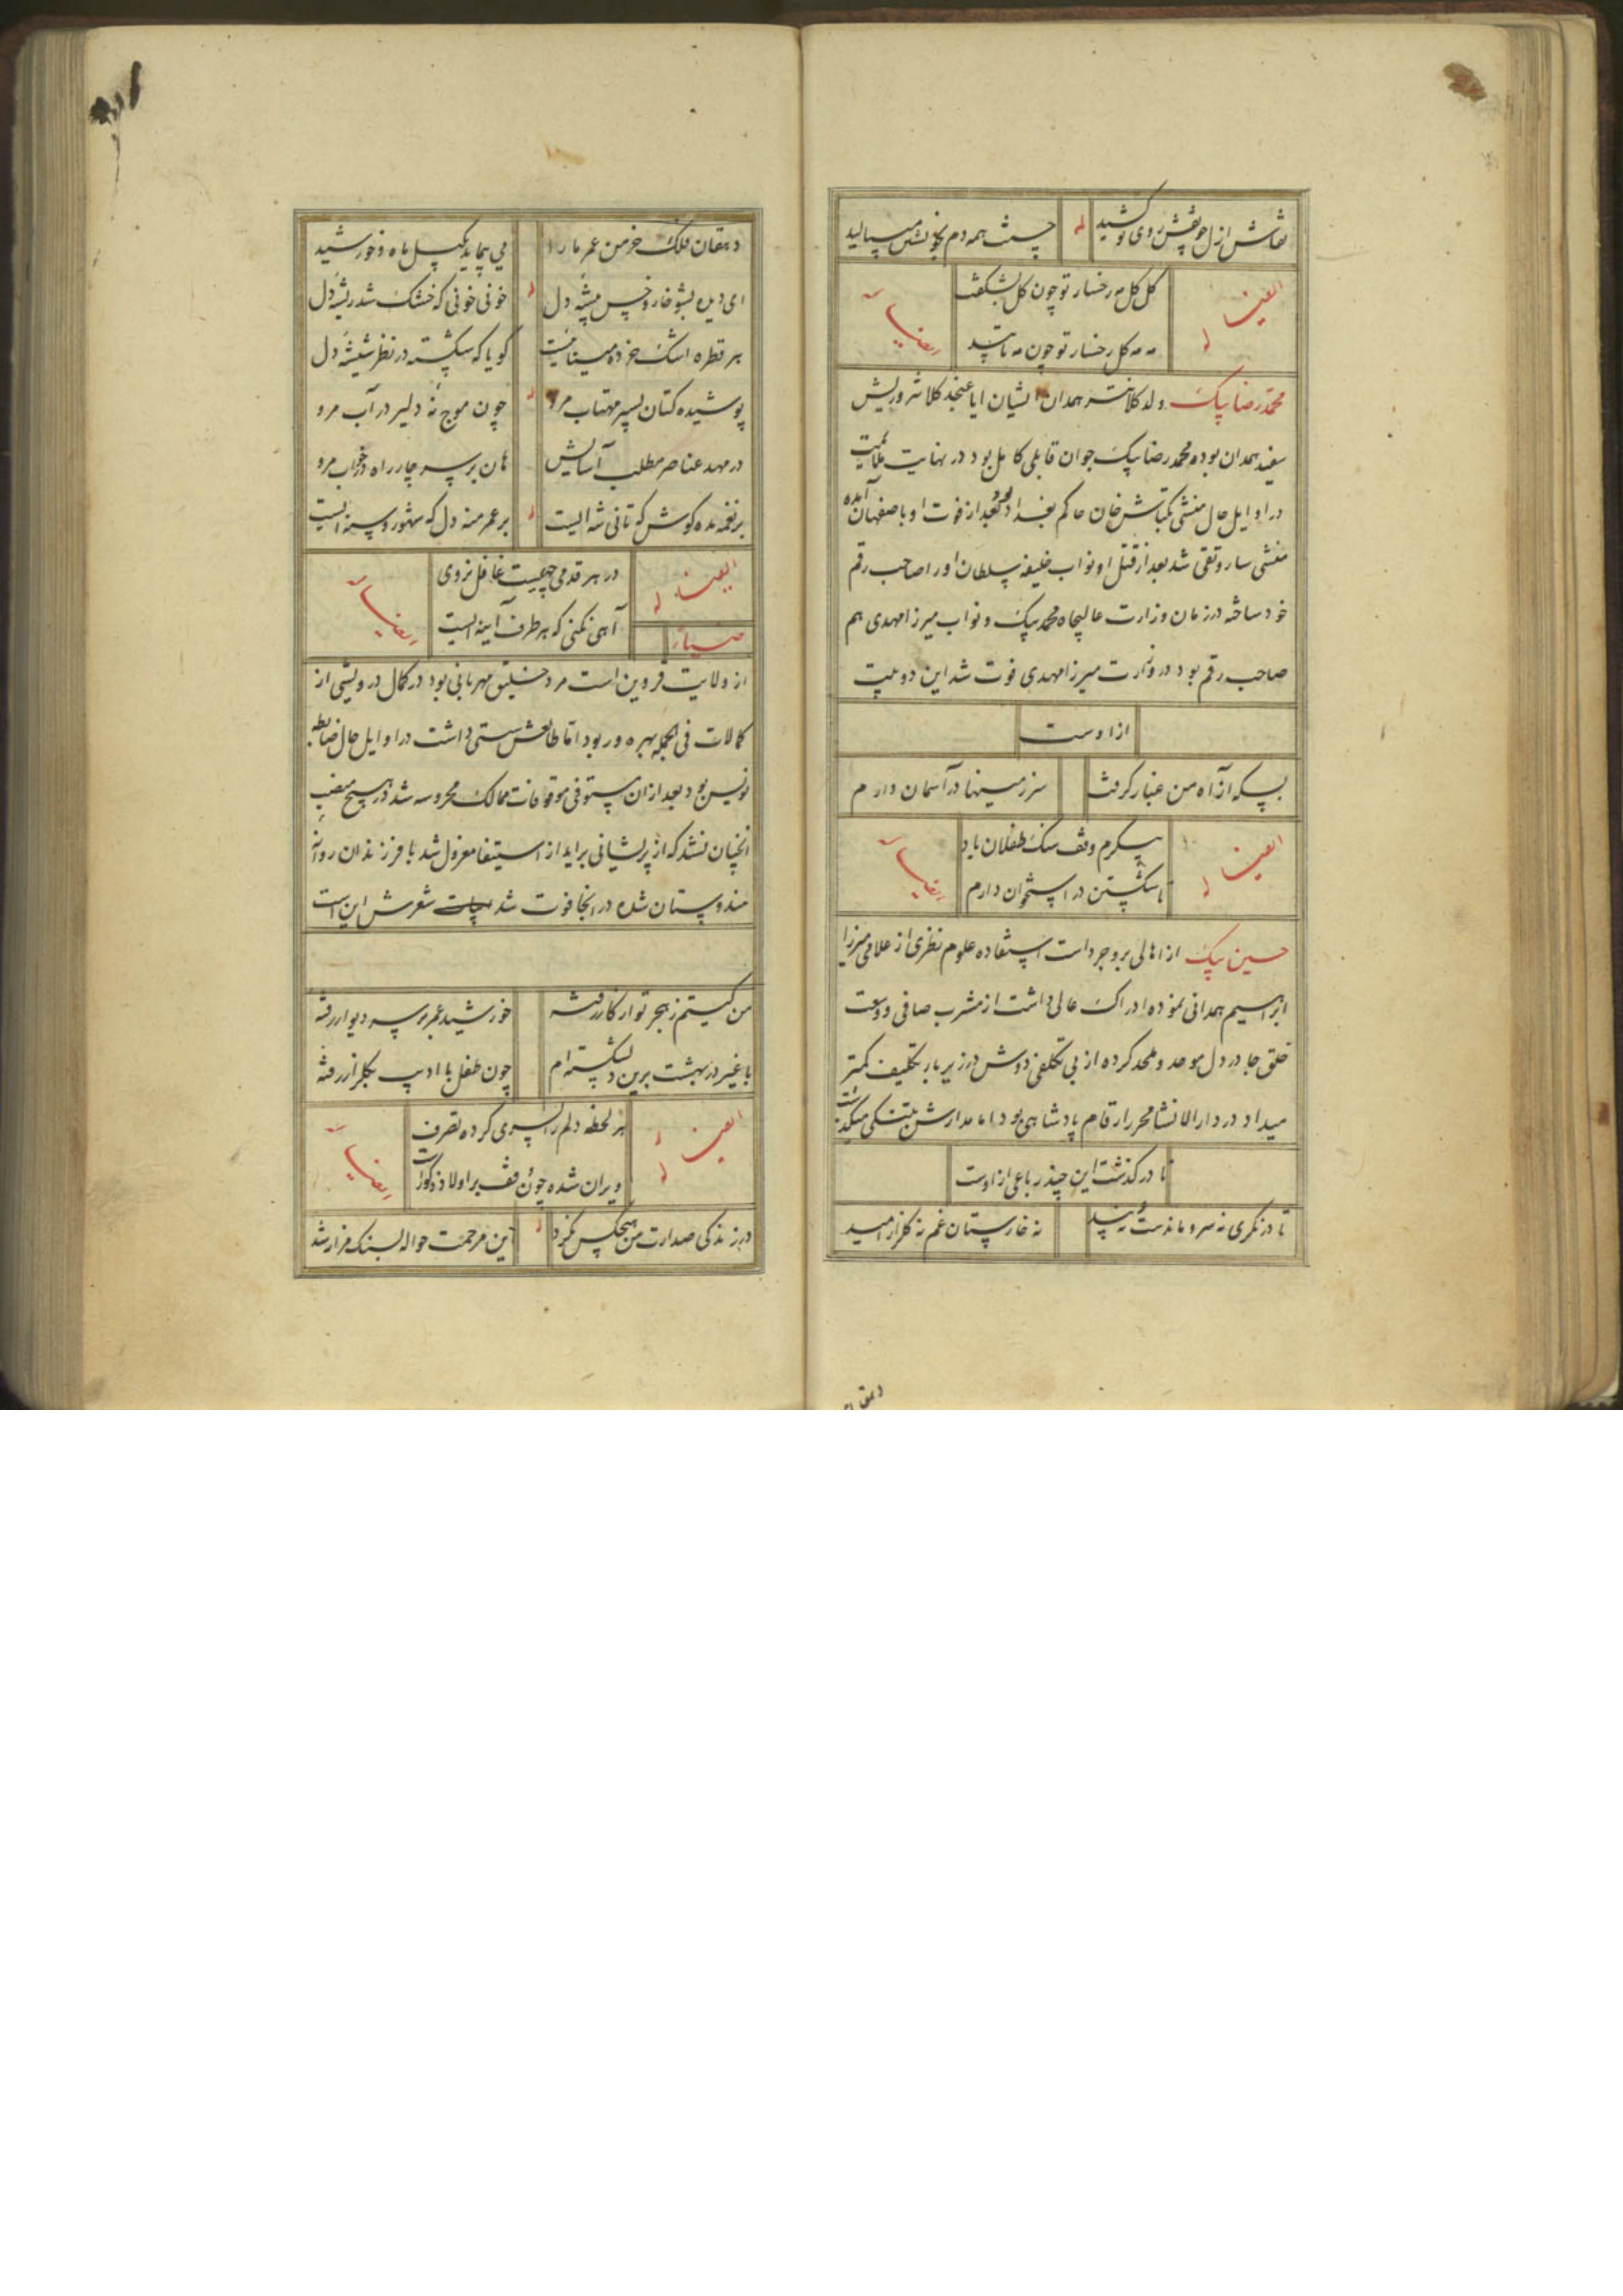 نقاش ازل چو نقش روی تو کشید له چشمت همه دم بخویشتن میبالید
ایضا له
کل کل مه رخسار تو چون کل بشکفت
مه مه کل رخسار تو چون مه تابید
ایضا
محمد رضا بیک ولد کلانتر همدان ایشان ابا عنجد کلانتر و ریش
سفید همدان بوده محمد رضا بیک جوان قابلی کامل بود در نهایت ملایمت
در اوایل حال منشی بکتاش خان حاکم بغداد بود بعد از فوت او باصفهان آمده
منشی ساروتقی شد بعد از قتل او نواب خلیفه سلطان او را صاحب رقم
خود ساخته در زمان وزارت عالیجاه محمد بیک و نواب میرزا مهدی هم
صاحب رقم بود در وزارت میرزا مهدی فوت شد این دو بیت
از اوست
بسکه از آه من غبار گرفت سرزمینها در آسمان دارم
ایضا له
پیکرم وقف سنک طفلان باد
تا شکستن در استخوان دارم
ایضا
حسین بیک از اهالی بروجرد است استفاده علوم نظری از علامی میرزا
ابراهیم همدانی نموده ادراک عالی داشت از مشرب صافی و وسعت
خلق جا در دل موحد و ملحد کرده از بی تکلفی دوش در زیر بار تکلیف کمتر
میداد در دارالانشا محرر ارقام پادشاهی بود اما مدارش بتنکی میکذشت
تا در کذشت این چند رباعی از اوست
تا در نکری نه سرو ماندست نه بید نه خارستان غم نه کلزار امید
دهقان
دهقان فلک خرمن عمر ما را می پیماید بکیل ماه و خورشید
ای دیده بشو خار و خس بیشه دل خونی خونی که خشک شد ریشه دل
هر قطره اشک خرده مینائیست کویا که شکسته در نظر شیشه دل
پوشیده کتان بسیر مهتاب مرو چون موج نهٔ دلیر در آب مرو
در مهد عناصر مطلب آسایش هان بر سر چار راه در خواب مرو
بر نغمه مده کوش که تانی شه الیست بر عمر منه دل که شهور و سنه ایست
ایضا له
در هر قدمی چهیست غافل نروی
آهی نکنی که هر طرف آینه ایست
ایضا
ضیاء
از ولایت قزوین است مرد خلیق مهربانی بود در کمال درویشی از
کمالات فی الجمله بهره ور بود اما طالعش سستی داشت در اوایل حال ضابطه
نویس بود بعد از ان مستوفی موقوفات ممالک محروسه شد در هیچ منصب
آنچنان نشد که از پریشانی براید از استیفا معزول شد با فرزندان روانه
هندوستان شده در انجا فوت شد شعرش این است
من کیستم ز هجر تو از کار رفته خورشید عمر بر سر دیوار رفته
با غیر در بهشت برین دلشکسته ام چون طفل با ادیب بکلزار رفته
ایضا له
هر لحظه دلم را پسری کرده تصرف
ویران شده چون وقف بر اولاد ذکور است
ایضا
در زندکی مدارت من هیچکس نکرد این مرحمت حواله بسنک مزار شد